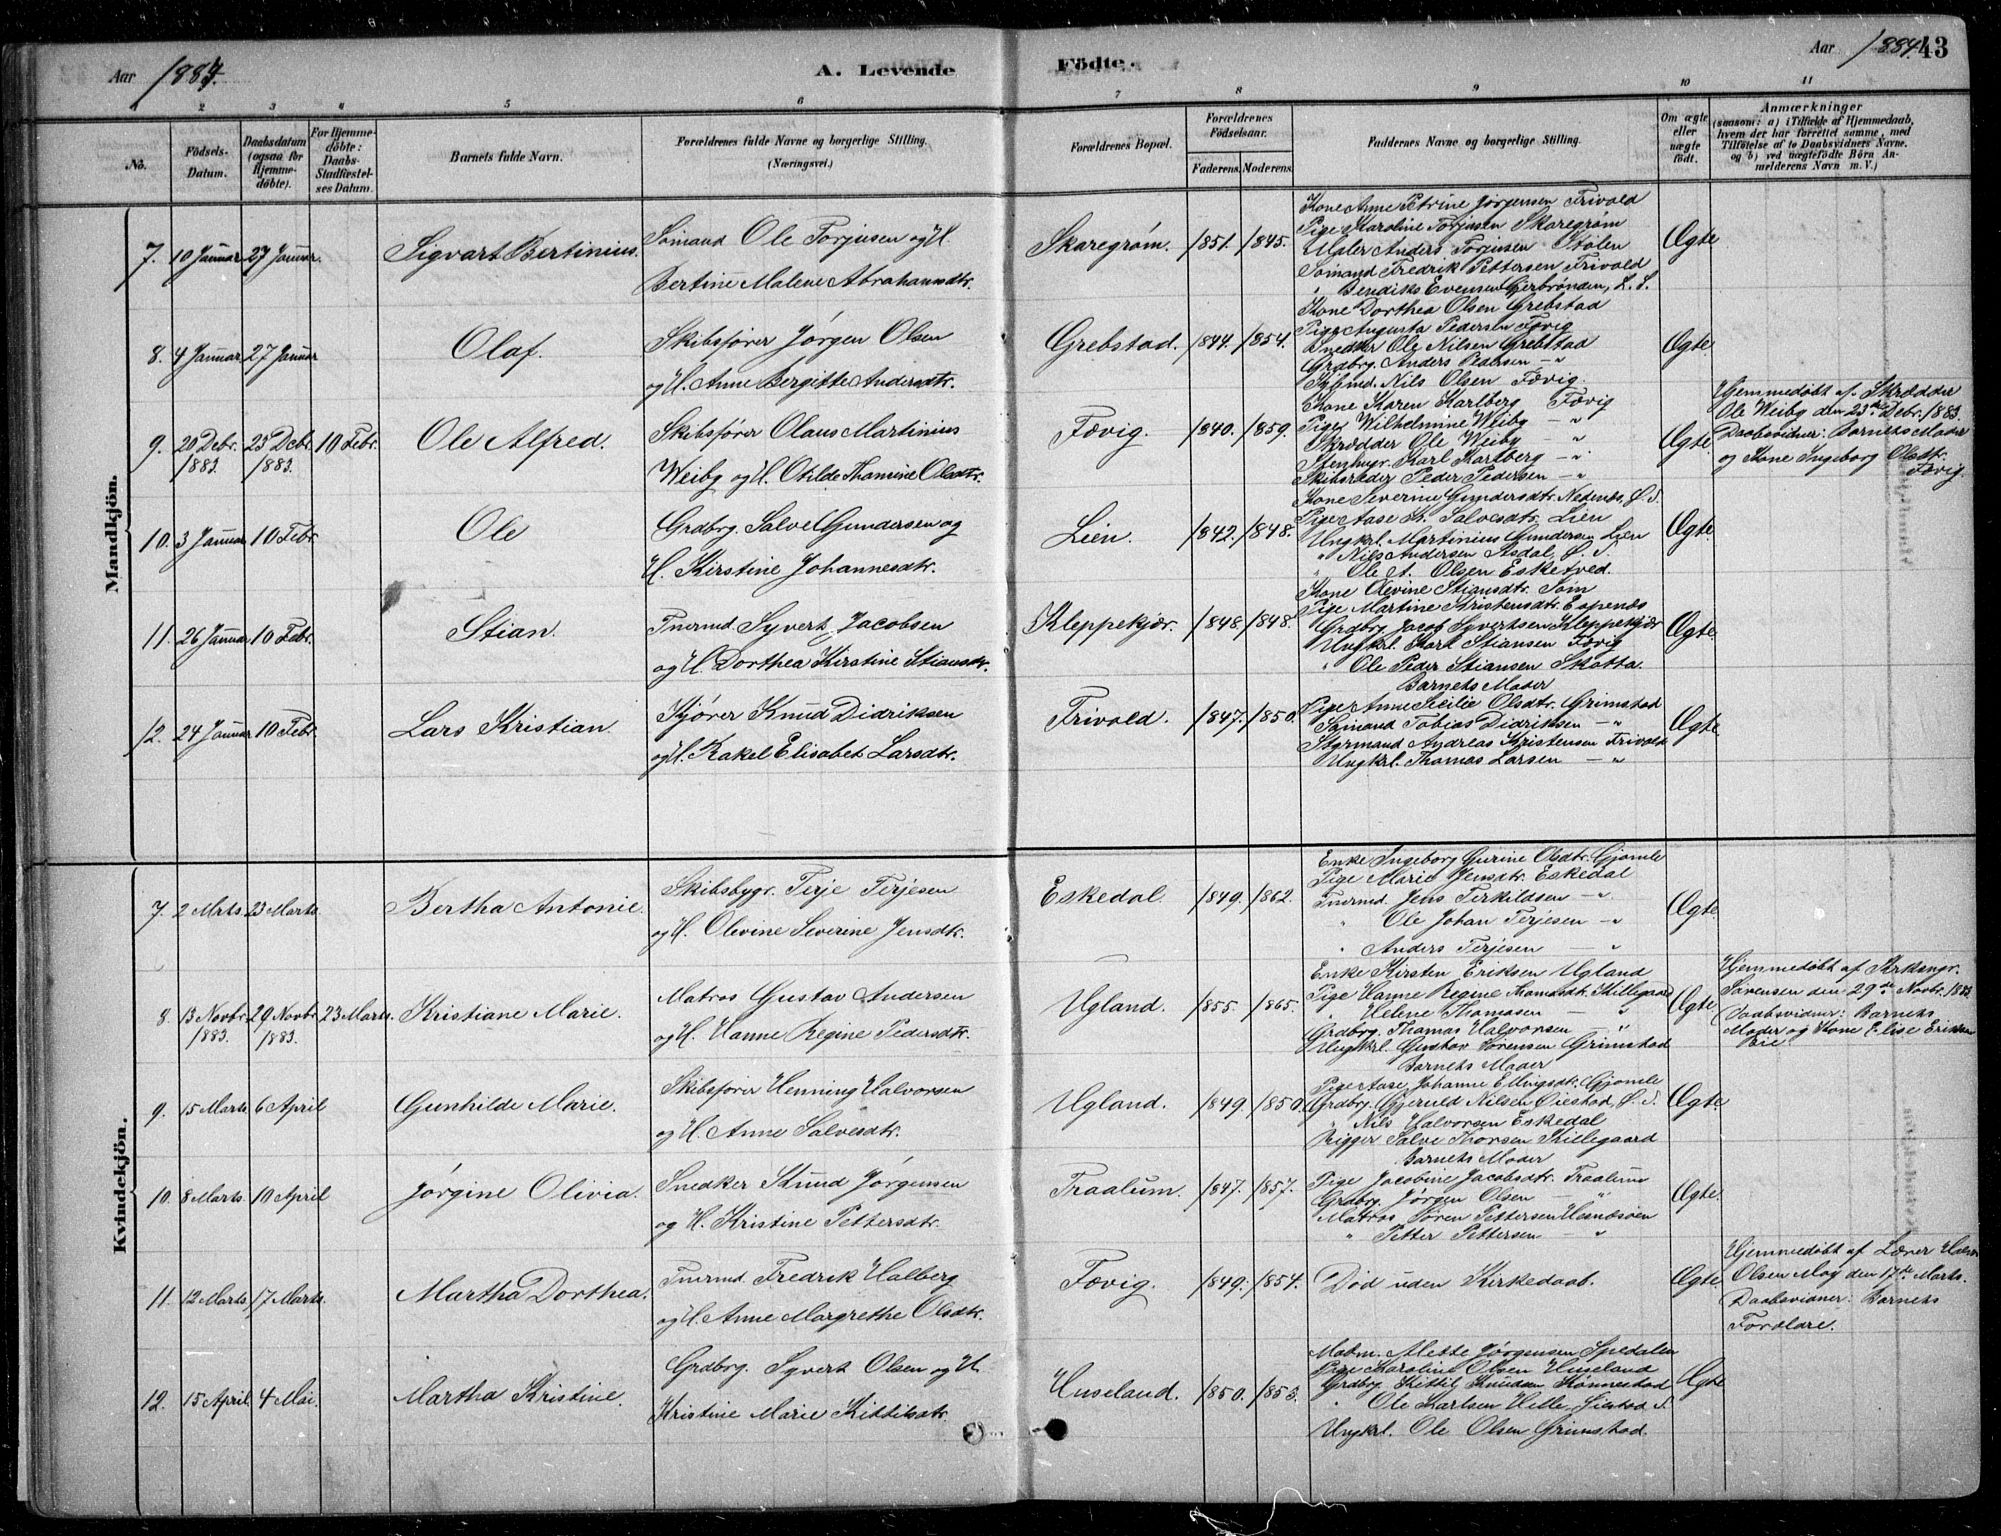 Aar 1884.
A. Levende
Födte.
Aar 1884.
43
1
2
3
4
5
6
7
8
9
10
11
No.
Födsels-
Datum.
Daabsdatum
(ogsaa for
Hjemme-
döbte).
For Hjemme-
döbte:
Daabs-
Stadfæstel-
ses Datum.
Barnets fulde Navn.
Forældrenes fulde Navne og borgerlige Stilling.
(Næringsvei.)
Forældrenes Bopæl.
Forældrenes
Födselsaar.
Faderens. Moderens.
Faddernes Navne og borgerlige Stilling.
Om ægte
eller
uægte
födt.
Anmærkninger
(saasom: a) i Tilfælde af Hjemmedaab,
hvem der har forrettet samme, med
Tilföielse af to Daabsvidners Navne.
og b) ved uægtefödte Börn An-
melderens Navn m. V.)
Mandkjön.
7. 10 Januar 27 Januar.
Sigvart Bertinius.
Sømand Ole Torjusen og H.
Bertine Malene Abrahamsdtr.
Skaregrøm. 1851. 1845.
Kone Anne Petrine Jørgensen Frivold
Pige Karoline Torjusen Skaregrøm
Maler Anders Torjusen Stølen
Sømand Fredrik Pettersen Frivold
" Bendiks Evensen Gjerbrønden, L. S.
Ægte
8. 4 Januar 27 Januar
Olaf.
Skibsfører Jørgen Olsen
og H. Anne Bergitte Andersdtr.
Grebstad. 1844. 1854.
Kone Dorthea Olsen Grebstad
Pige Augusta Pedersen Fævig
Snedker Ole Nilsen Grebstad
Grdbrg. Anders Pedersen — " —
Sjømd. Nils Olsen Fævig.
Ægte
9. 20 Debr. 1883. 23 Debr. 1883. 10 Febr.
Ole Alfred.
Skibsfører Olaus Martinius
Weiby og H. Otilde Thomine Olsdtr.
Fævig. 1840. 1859.
Kone Karen Karlberg Fævig
Pige Wilhelmine Weiby — "
Skrædder Ole Weiby — "
Stenhugr. Karl Karlberg — "
Skibsreder Peder Pedersen — "
Ægte
Hjemmedøbt af Skrædder
Ole Weiby den 23de Debr. 1883.
Daabsvidner: Barnets Moder
og Kone Ingeborg Olsdtr.
Fævig.
10. 3 Januar 10 Febr.
Ole
Grdbrg. Salve Gundersen og
H. Kirstine Johannesdtr.
Lien. 1842. 1848.
Kone Severine Gundersdtr. Nedenæs, Ø. S.
Pige Aase K. Salvesdtr. Lien
Ungkrl. Martinius Gundersen Lien
" Nils Andersen Asdal, Ø. S.
" Ole A. Olsen Esketved.
Ægte
11. 26 Januar 10 Febr.
Stian.
Tmrmd. Syvert Jacobsen
og H. Dorthea Kirstine Stiansdtr.
Kleppekjær. 1848. 1848.
Kone Olevine Stiansdtr. Søm
Pige Martine Kristensdtr. Espenæs
Grdbrg. Jacob Syvertsen Kleppekjær
Ungkrl. Karl Stiansen Fævig
" Ole Peder Stiansen Skatta.
Ægte
12. 24 Januar 10 Febr.
Lars Kristian
Kjører Knud Didriksen
og H. Rakel Elisabet Larsdtr.
Frivold. 1847. 1850.
Barnets Moder
Pige Anne Sicilie Olsdtr. Grimstad
Sømand Tobias Didriksen — "
Styrmand Andreas Kristensen Frivold
Ungkrl. Thomas Larsen — "
Ægte
Kvindekjön.
7. 2 Mrts. 23 Marts.
Bertha Antonie.
Skibsbygr. Terje Terjesen
og H. Olevine Severine Jensdtr.
Eskedal. 1849. 1862.
Enke Ingeborg Gurine Olsdtr. Gjømle
Pige Marie Jensdtr. Eskedal
Tmrmd. Jens Terkildsen — "
" Ole Johan Terjesen — "
" Anders Terjesen — "
Ægte
8. 13 Novbr. 1883. 29 Novbr. 1883. 23 Marts.
Kristiane Marie.
Matros Gustav Andersen
og H. Hanne Regine Pedersdtr.
Ugland. 1855. 1865.
Enke Kirsten Eriksen Ugland
Pige Hanne Regine Thomasdtr. Skillegaard
" Helene Thomasen — "
Grdbrg. Thomas Halvorsen — "
Ungkrl. Gustav Sørensen Grimstad
Ægte
Hjemmedøbt af Kirksngr.
Sørensen den 29de Novbr. 1883
Daabsvidner: Barnets
Moder og Kone Elise Eriksen
Eie
9. 15 Marts. 6 April
Gunhilde Marie.
Skibsfører Henning Halvorsen
og H. Anne Salvesdtr.
Ugland. 1849. 1850.
Barnets Moder
Pige Aase Johanne Ellingsdtr. Gjømle
Grdbrg. Gjeruld Nilsen Øiestad, Ø. S.
" Nils Halvorsen Eskedal
Rigger Salve Thorsen Skillegaard
Ægte
10. 8 Marts. 10 April
Jørgine Olivia.
Snedker Knud Jørgensen
og H. Kristine Pettersdtr.
Traalum. 1847. 1857.
Barnets Moder
Pige Jacobine Jacobsdtr. Traalum
Grdbrg. Jørgen Olsen — "
Matros Søren Pettersen Hesnæsøen
" Petter Pettersen — "
Ægte
11. 12 Marts. 17 Marts.
Martha Dorthea.
Tmrmd. Fredrik Halberg
og H. Anne Margrethe Olsdtr.
Fævig. 1849. 1854.
Død uden Kirkedaab.
Ægte
Hjemmedøbt af Lærer
Olsen Moy den 17de Marts.
Daabsvidner: Barnets
Forældre.
12. 15 April 4 Mai.
Martha Kristine.
Grdbrg. Syvert Olsen og H
Kristine Marie Kittilsdtr.
Huseland. 1850. 1853.
Madm. Mette Jørgensen Spedalen
Pige Karoline Olsen Huseland
Grdbrg. Kittil Knudsen Kønnestad
" Ole Karlsen Hille,
Ungkrl. Ole Olsen Grimstad.
Ægte